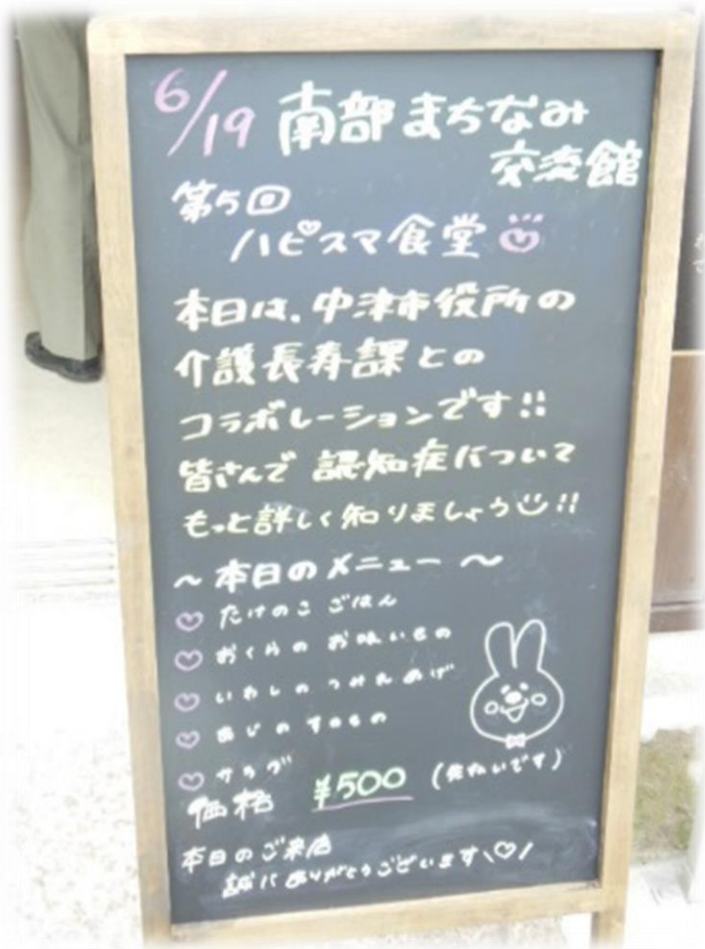 6/19 南部まちなみ
交流館
第5回
ハピスマ食堂
本日は、中津市役所の
介護長寿課との
コラボレーションです!!
皆さんで 認知症について
もっと詳しく知りましょう!!
～本日のメニュー～
たけのこ ごはん
おくらの お吸いもの
いわしの つみれあげ
あじの すのもの
サラダ
価格 ¥500 (先払いです)
本日のご来店
誠にありがとうございます